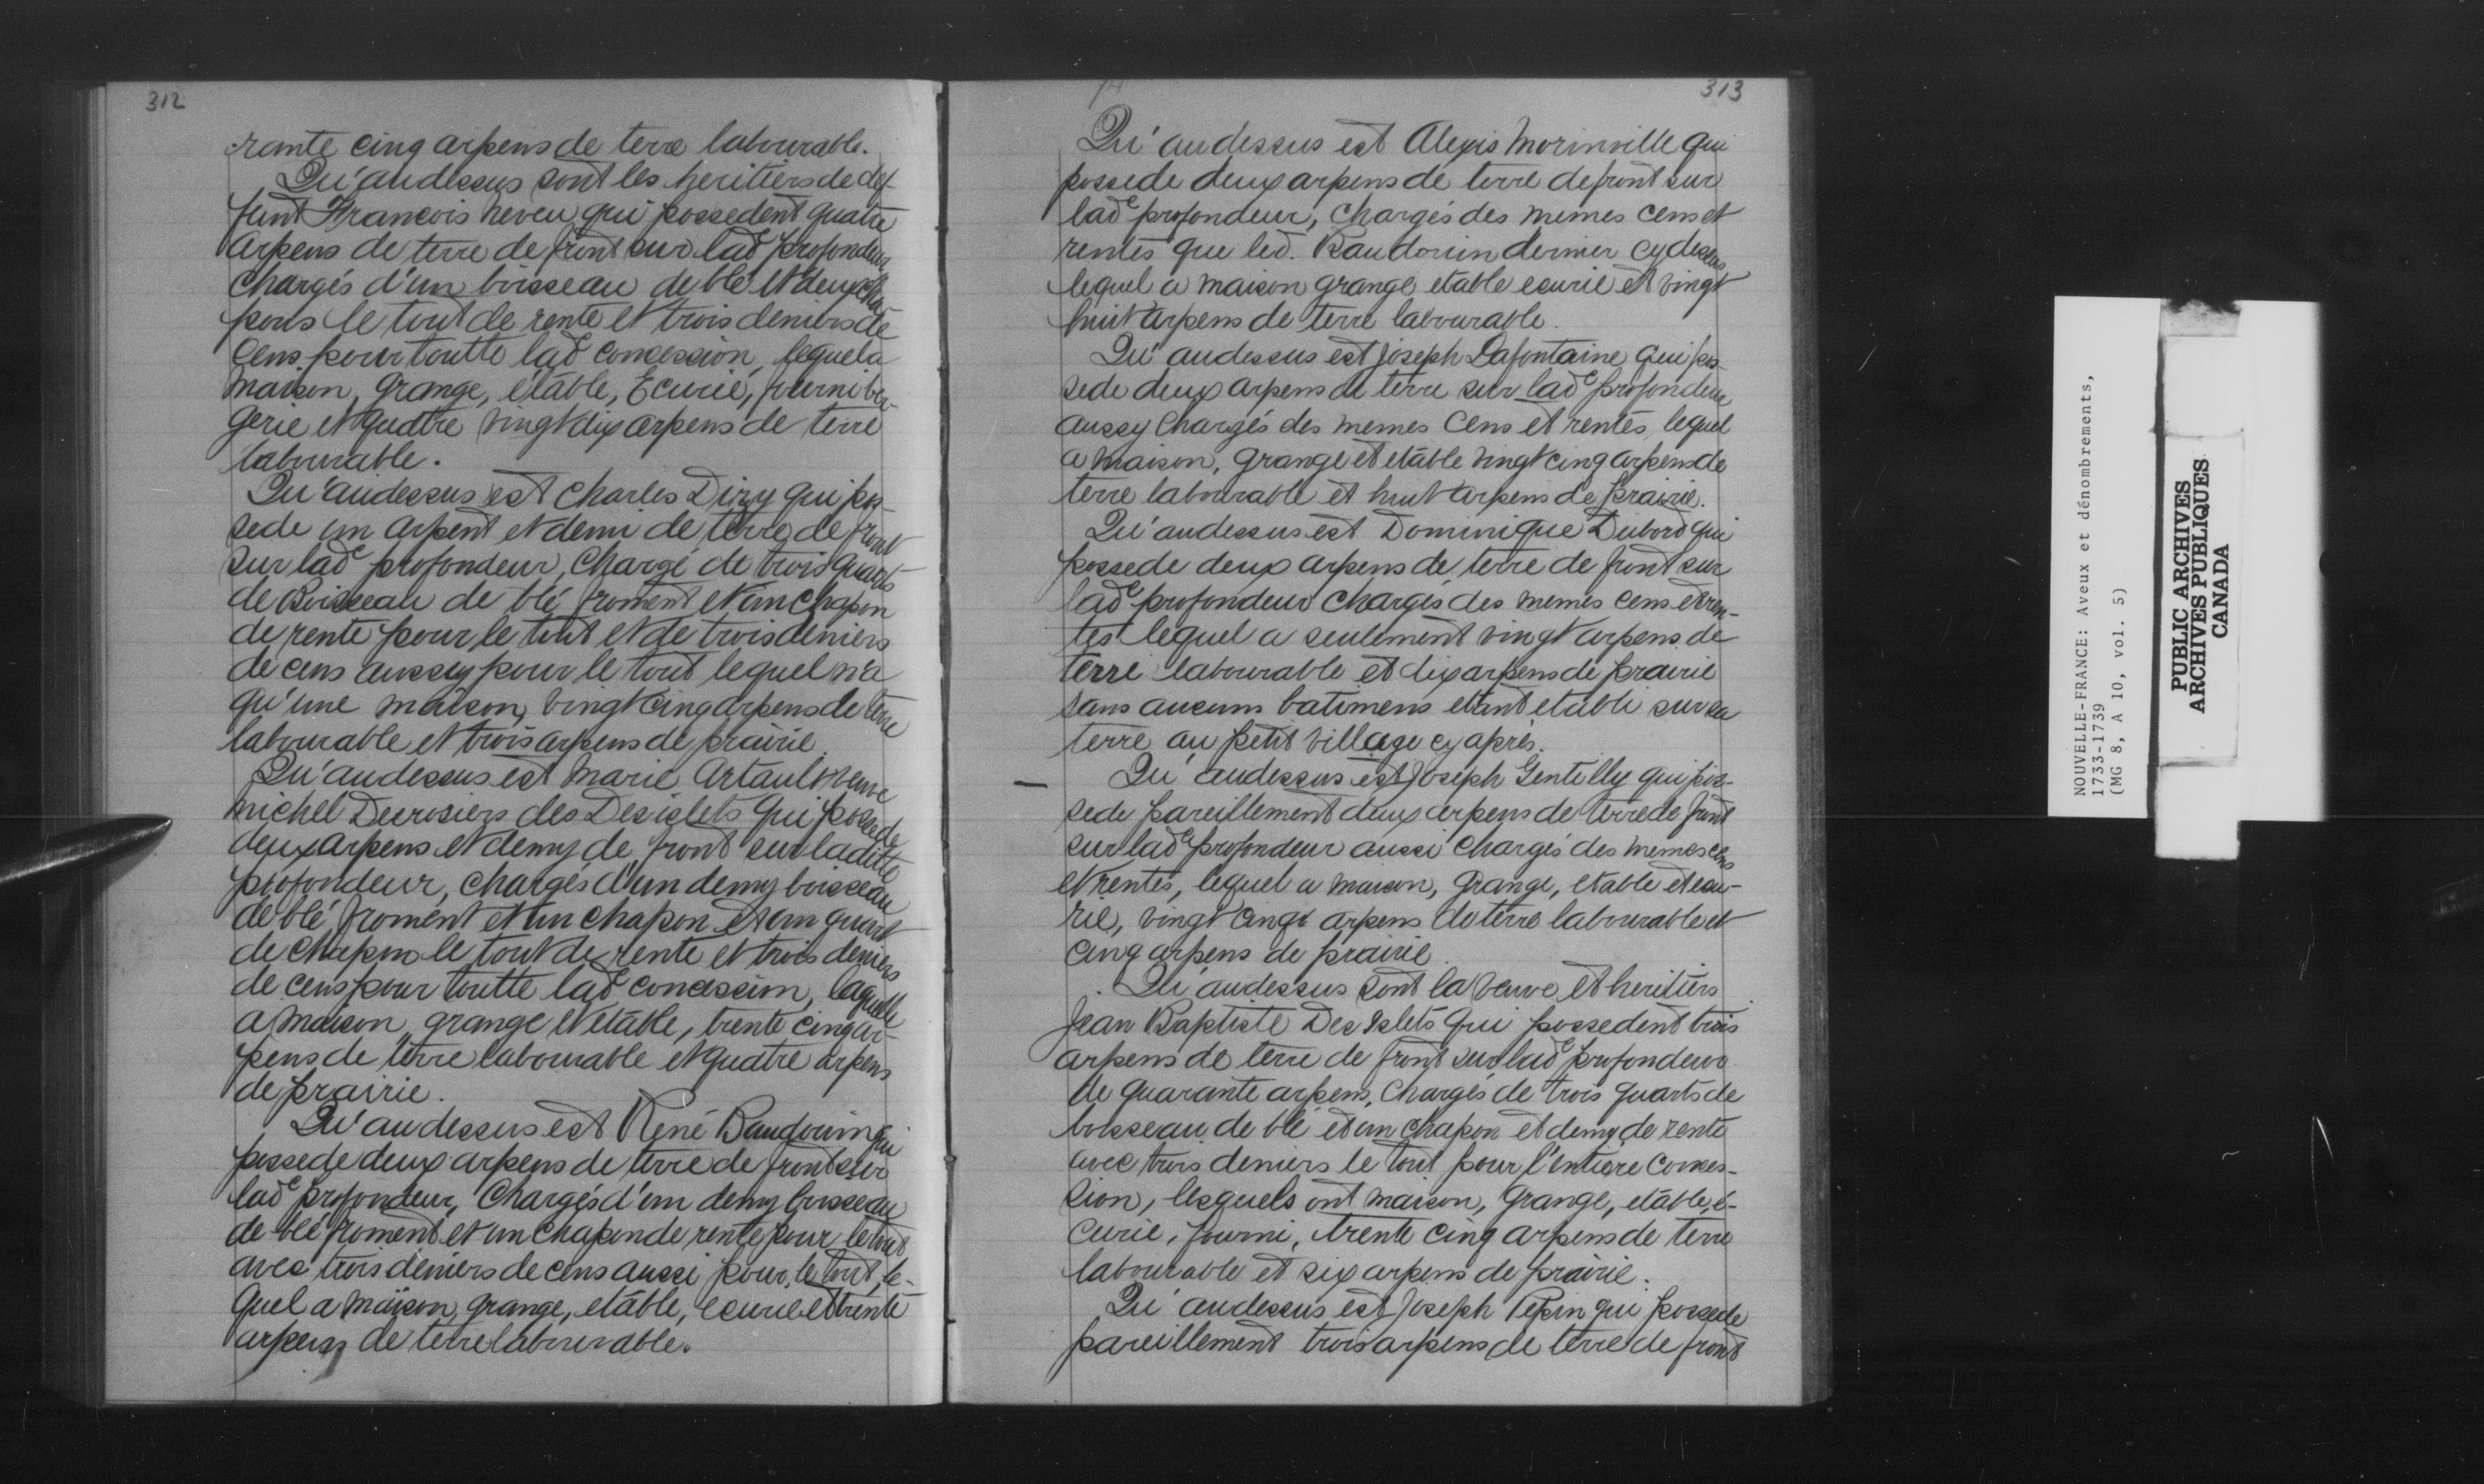 312
rante cinq arpens de terre labourable.
Qu'audessus sont les heritiers de def-
funt Francois neveu qui possedent quatre
arpens de terre de front sur lade profondeur
chargés d'un boisseau de blé et deux cha-
pons le tout de rente et trois deniers de
Cens pour toutte lade concession, lequel a
maison, grange, etable, Ecurie, fourni ber-
gerie et quatre vingt dix arpens de terre
labourable.
Qu'audessus est Charles Dizy qui pos-
sede un arpent et demi de terre de front
sur lade profondeur, chargé de trois quarts
de Boisseau de blé froment et un chapon
de rente pour le tout et de trois deniers
de cens aussy pour le tout lequel n'a
qu'une maison, vingt cinq arpens de terre
labourable et trois arpens de prairie.
Qu'audessus est Marie Artault veuve
michel Desrosiers des Desislets qui possede
deux arpens et demy de front sur laditte
profondeur, chargés d'un demy boisseau
de blé froment et un chapon et un quart
de chapon le tout de rente et trois deniers
de cens pour toutte lade concession, laquelle
a maison grange et etable, trente cinq ar-
pens de terre labourable et quatre arpens
de prairie.
Qu'audessus est René Baudouin qui
possede deux arpens de terre de front sur
lade profondeur, Chargés d'un demy boisseau
de blé froment et un chapon de rente pour le tout
avec trois deniers de cens aussi pour le tout, le-
quel a maison, grange, etable, ecurie et trente
arpens de terre labourable.
14
313
Qu'audessus est Alexis Morinville qui
possede deux arpens de terre de front sur
lade profondeur, chargés des mêmes cens et
rentes que led. Baudouin dernier cy dessus
lequel a maison grange etable ecurie et vingt
huit arpens de terre labourable.
Qu'audessus est Joseph Lafontaine qui pos-
sede deux arpens de terre sur lade profondeur
aussy chargés des memes Cens et rentes, lequel
a maison, grange et etable vingt cinq arpens de
terre labourable et huit arpens de prairie.
Qu'audessus est Dominique Dubord qui
possede deux arpens de terre de front sur
lade profondeur chargés des memes cens et ren-
tes lequel a seulement vingt arpens de
terre labourable et dix arpens de prairie
sans aucuns batimens etant etabli sur sa
terre au petit village cy après.
Qu'audessus est Joseph Gentilly qui pos-
sede pareillement deux arpens de terre de front
sur lade profondeur aussi chargés des memes cens
et rentes, lequel a maison, grange, etable et ecu-
rie, vingt cinq arpens de terre labourable et
cinq arpens de prairie.
Qu'audessus sont la veuve et heritiers
Jean Baptiste Des Islets qui possedent trois
arpens de terre de front sur lade profondeur
de quarante arpens, chargés de trois quarts de
boisseau de blé et un chapon et demy de rente
avec trois deniers le tout pour l'entiere conces-
sion, lesquels ont maison, grange, etable, é-
curie, fourni, trente cinq arpens de terre
labourable et six arpens de prairie.
Qu'audessus est Joseph Pepin qui possede
pareillement trois arpens de terre de front
NOUVELLE-FRANCE: Aveux et dénombrements,
1733-1739
(MG 8, A 10, vol. 5)
PUBLIC ARCHIVES
ARCHIVES PUBLIQUES
CANADA